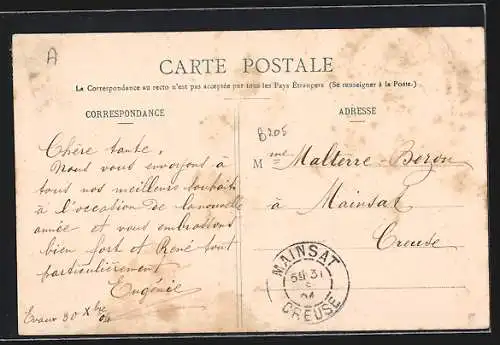 A
CARTE POSTALE
La Correspondance au recto n'est pas acceptée par tous les Pays Étrangers (Se renseigner à la Poste.)
CORRESPONDANCE
ADRESSE
B205
Chère tante,
Nous vous envoyons à
tous nos meilleurs souhaits
à l'occasion de la nouvelle
année et vous embrassons
bien fort et René tout
particulièrement
Eugénie
Evaux 30 Xbre 04
Mme Malterre-Bozon
à Mainsat
Creuse
MAINSAT
31
04
CREUSE